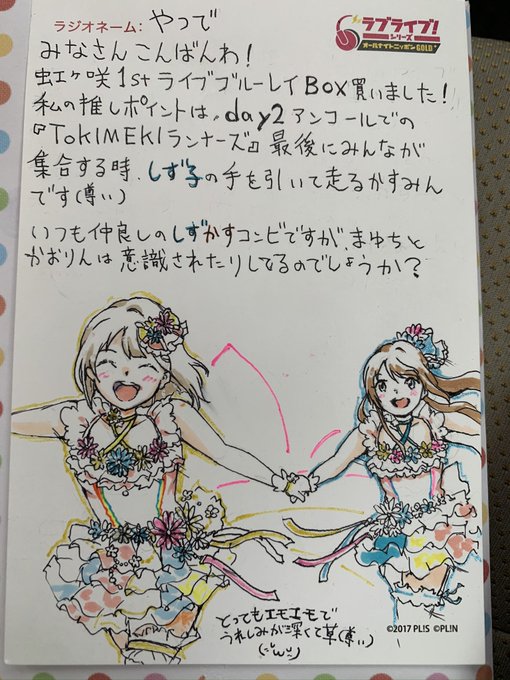 ラジオネーム: やつで
ラブライブ!
シリーズ
オールナイトニッポンGOLD
みなさんこんばんわ!
虹ヶ咲1stライブブルーレイBOX買いました!
私の推しポイントは、day2アンコールでの
『TOKIMEKIランナーズ』最後にみんなが
集合する時、しず子の手を引いて走るかすみん
です(尊い)
いつも仲良しのしずかすコンビですが、まゆちと
かおりんは意識されたりしてるのでしょうか?
とってもエモエモで
うれしみが深くて草(尊い)
(˘ω˘)
©2017 PL!S ©PL!N